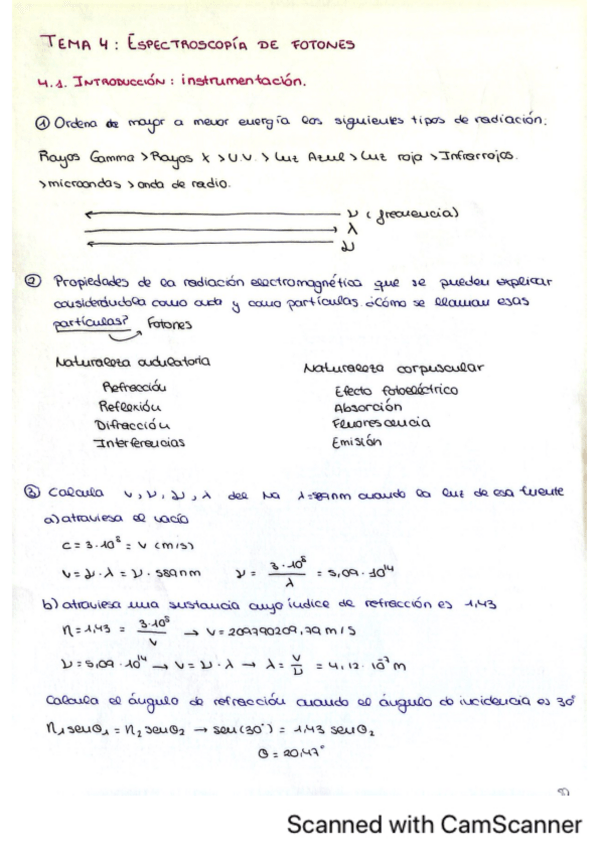 TEMA 4: ESPECTROSCOPÍA DE FOTONES
4.1. INTRODUCCIÓN: instrumentación.
① Ordena de mayor a menor energía los siguientes tipos de radiación:
Rayos Gamma > Rayos X > U.V. > Luz Azul > Luz roja > Infrarrojos.
> microondas > onda de radio.
ν (frecuencia)
λ
ν̄
② Propiedades de la radiación electromagnética que se pueden explicar
considerándola como onda y como partículas. ¿Cómo se llaman esas
partículas? Fotones
Naturaleza ondulatoria
Refracción
Reflexión
Difracción
Interferencias
Naturaleza corpuscular
Efecto fotoeléctrico
Absorción
Fluorescencia
Emisión
③ Calcula v, ν, ν̄, λ del Na λ=589nm cuando la luz de esa fuente
a) atraviesa el vacío
c = 3·10⁸ = v (m/s)
v = ν·λ = ν·589nm ν = 3·10⁸/λ = 5,09·10¹⁴
b) atraviesa una sustancia cuyo índice de refracción es 1,43
n = 1,43 = 3·10⁸/v → v = 209790209,79 m/s
ν = 5,09·10¹⁴ → v = ν·λ → λ = v/ν = 4,12·10⁻⁷ m
Calcula el ángulo de refracción cuando el ángulo de incidencia es 30°
n₁ senθ₁ = n₂ senθ₂ → sen(30°) = 1,43 senθ₂
θ = 20,47°
Scanned with CamScanner